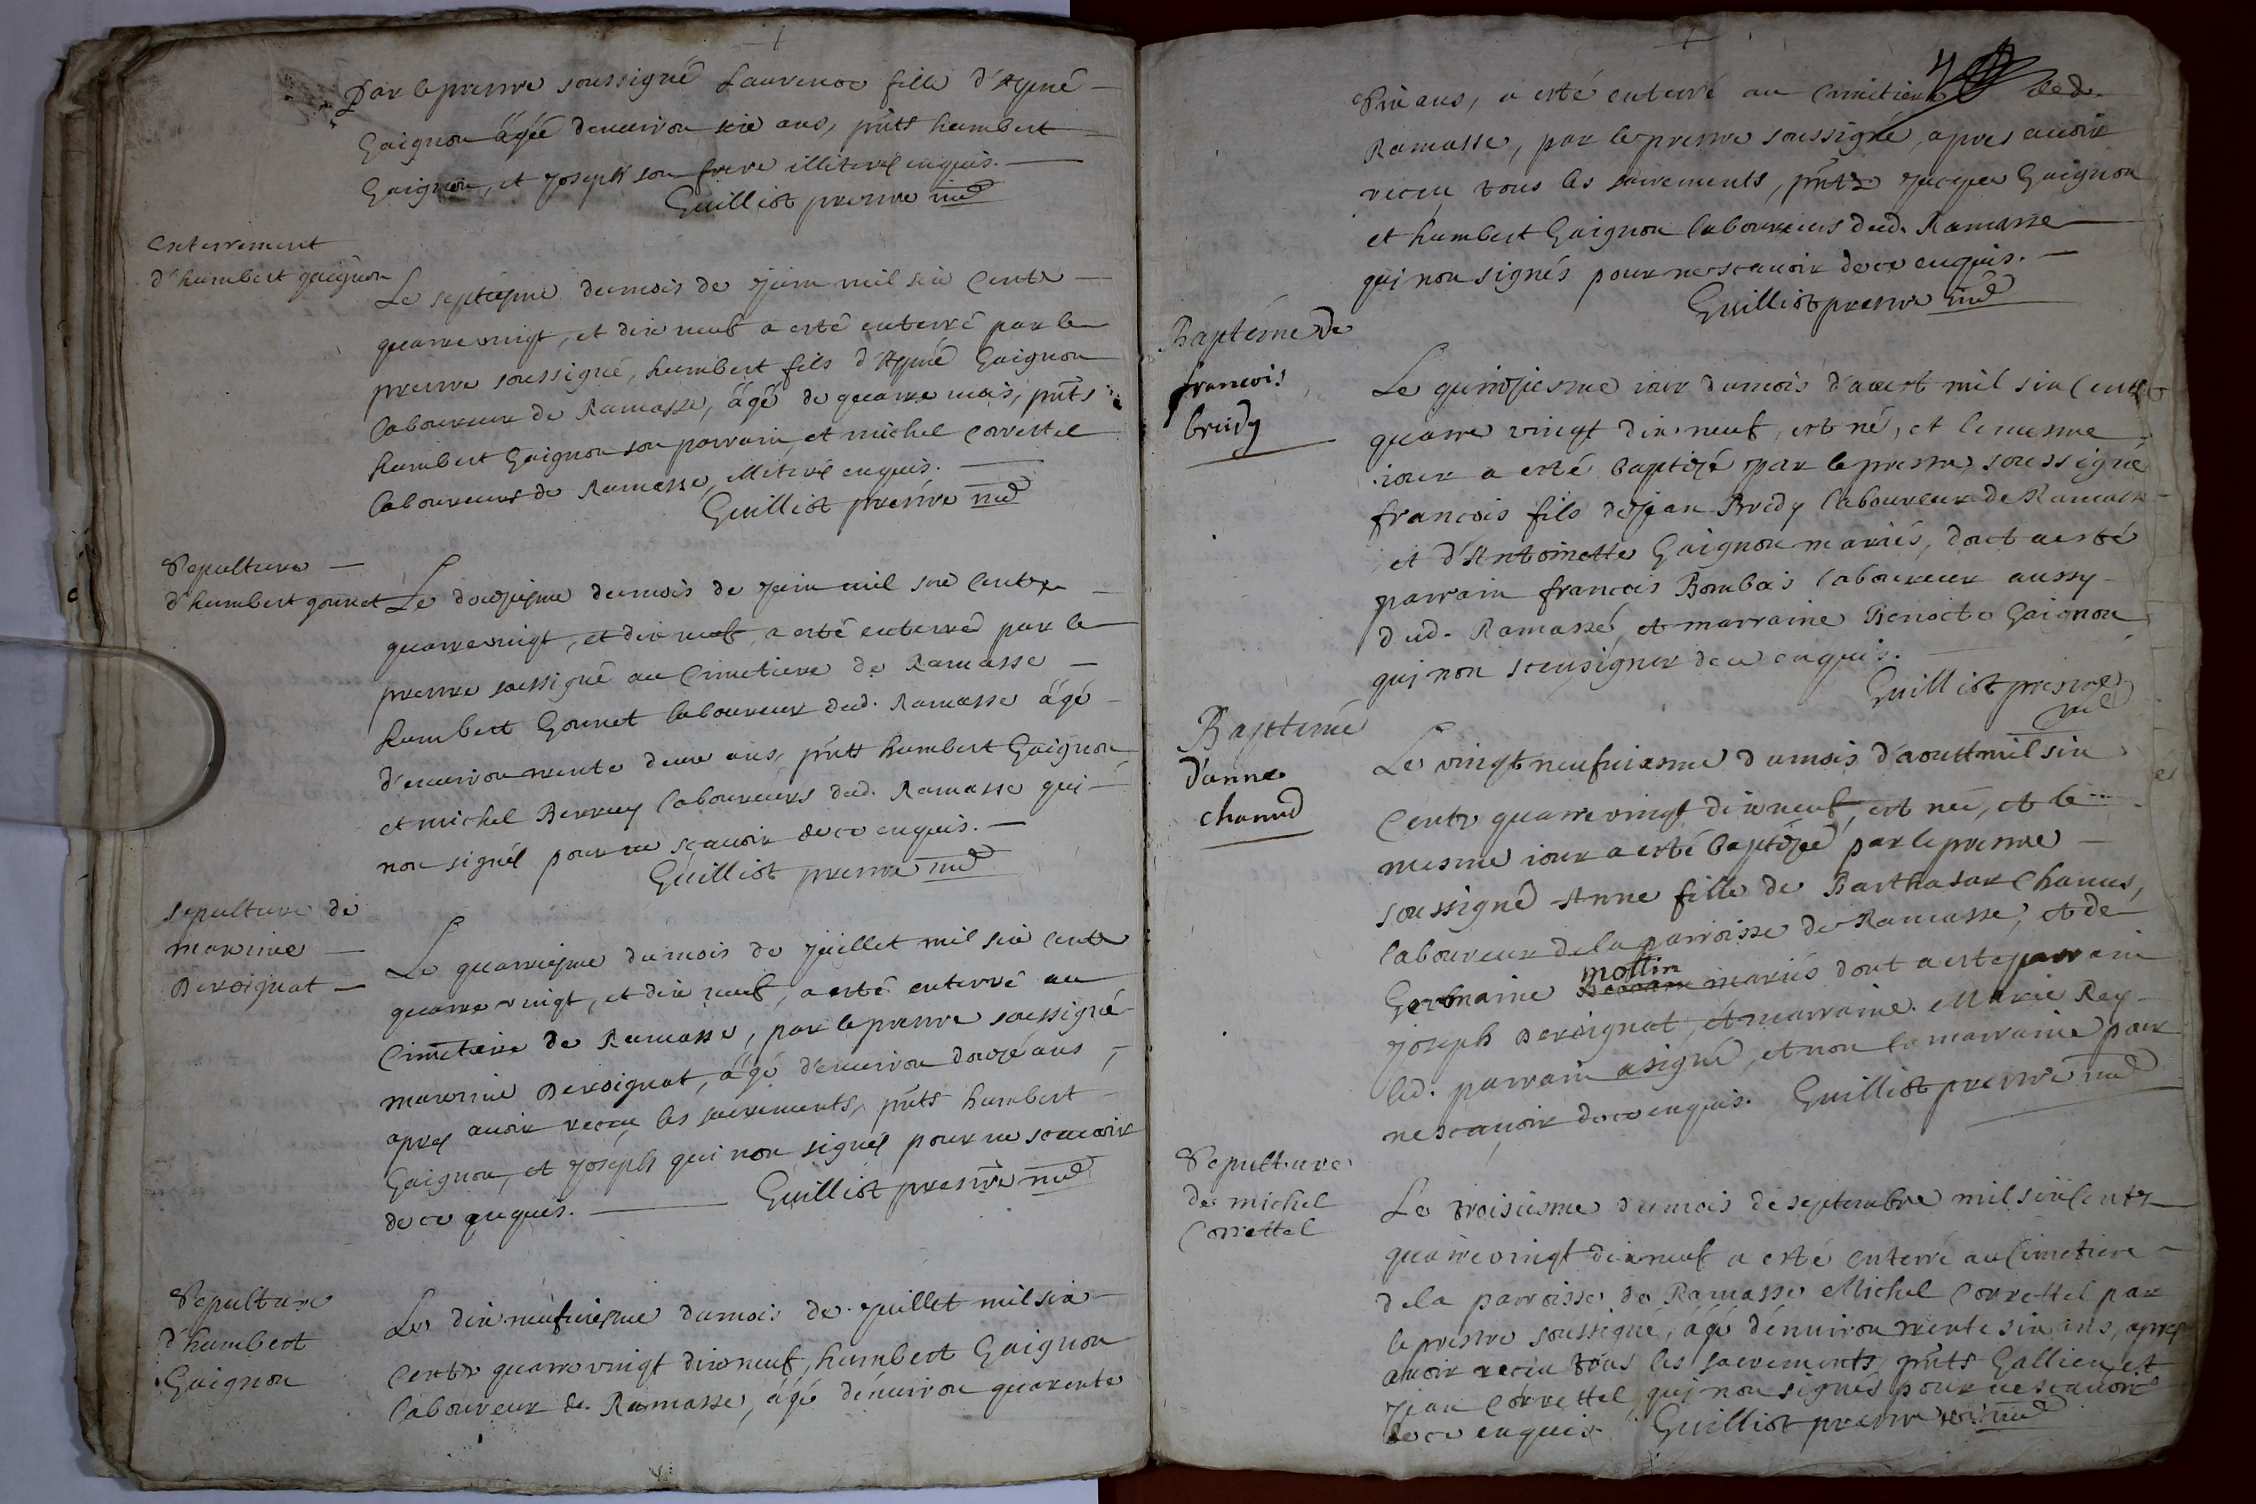 Par le prestre soussigné Laurence fille d'Aymé
Gaignon âgée d'enuiron seix ans, pnts humbert
Gaignon, et Joseph son frere illiterés enquis.
Guilliot prestre
Enterrement
d'humbert gaignon
Le septiesme du mois de Juin mil six Cents
quatre vingt, et dix neuf a esté enterré par le
prestre soussigné, humbert fils d'Aymé Gaignon
laboureur de Ramasse, âgé de quatre mois, pnts
humbert Gaignon son parrain, et michel Correttel
laboureurs de Ramasse, illiterés enquis.
Guilliot prestre
Sepulture
d'humbert gonnet
Le douziesme du mois de Juin mil six Cents
quatre vingt, et dix neuf, a esté enterré par le
prestre soussigné au Cimetiere de Ramasse
humbert Gonnet laboureur dud. Ramasse âgé
d'enuiron trente deux ans, pnts humbert Gaignon
et michel laboureurs dud. Ramasse qui
non signés pour ne sçauoir de ce enquis.
Guilliot prestre
sepulture de
maurice
Deroignat
Le quatriesme du mois de Juillet mil six Cents
quatre vingt, et dix neuf, a esté enterré au
Cimetiere de Ramasse, par le prestre soussigné
maurice Deroignat, âgé d'enuiron douze ans
apres auoir receu les sacrements, pnts humbert
Gaignon, et Joseph qui non signés pour ne scauoir
de ce enquis. Guilliot prestre
Sepulture
d'humbert
Gaignon
Le dix neufuiesme du mois de Juillet mil six
Cents quatre vingt dix neuf, humbert Gaignon
laboureur de Ramasse, âgé d'enuiron quarente
six ans, a esté enterré au Cimitiere de
Ramasse, par le prestre soussigné, apres auoir
receu tous les sacrements, pnts Gaignon
et humbert Gaignon laboureurs dud. Ramasse
qui non signés pour ne scauoir de ce enquis.
Guilliot prestre
Baptéme de
francois
bridy
Le quinziesme iour du mois d'aoust mil six Cents
quatre vingt dix neuf, est né, et le mesme
iour a esté baptizé par le prestre soussigné
françois fils de Jean Bredy laboureur de Ramasse
et d'Antoinette Gaignon mariés, dont a esté
parrain francois Bombois laboureur aussy
dud. Ramasse, et marraine Benoite Gaignon
qui non sceu signer de ce enquis.
Guilliot prestre
Baptemé
d'anne
chanud
Le vingt neufuiesme du mois d'aoust mil six
Cents quatre vingt dix neuf, est née, et le
mesme iour a esté baptizée par le prestre
soussigné Anne fille de Barthasar Chanus,
laboureur de la parroisse de Ramasse, et de
mollin
Germaine mariés dont a esté parrain
Joseph Deroignat, et marraine Marie Rey
led. parrain a signé, et non la marraine pour
ne scauoir de ce enquis. Guilliot prestre
Sepulture
de michel
Correttel
Le troisiesme du mois de septembre mil six Cents
quatre vingt dix neuf a esté enterré au Cimetiere
de la parroisse de Ramasse Michel Correttel par
le prestre soussigné, âgé d'enuiron trente six ans, apres
auoir receu tous les sacrements, pnts Gallien, et
Jean Correttel, qui non signés pour ne scauoir
de ce enquis. Guilliot prestre